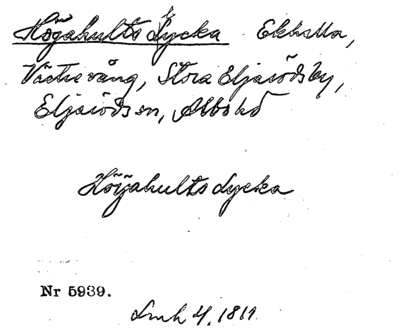 Höjahults Lycka Ekhalla,
Västre vång, Stora Eljarödsby,
Eljaröds sn, Albo hd
Höijahults Lycka
Nr 5939.
4, 1811